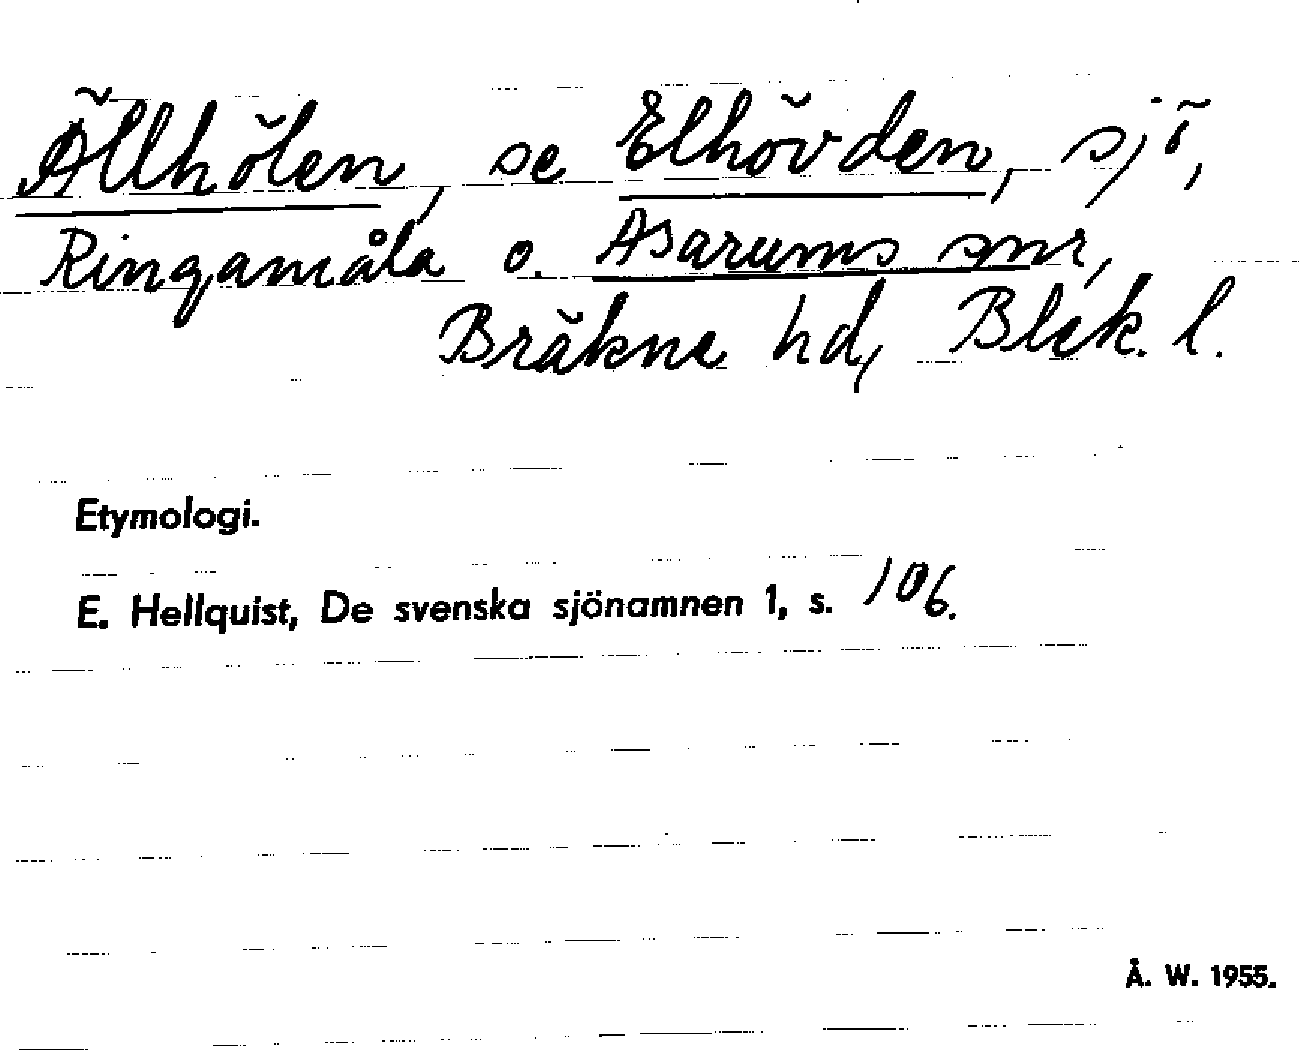 Ällhölen, se Elhövden, sjö,
Ringamåla o. Asarums snr,
Bräkne hd, Blek. l.
Etymologi.
E. Hellquist, De svenska sjönamnen 1, s. 106.
Å. W. 1955.